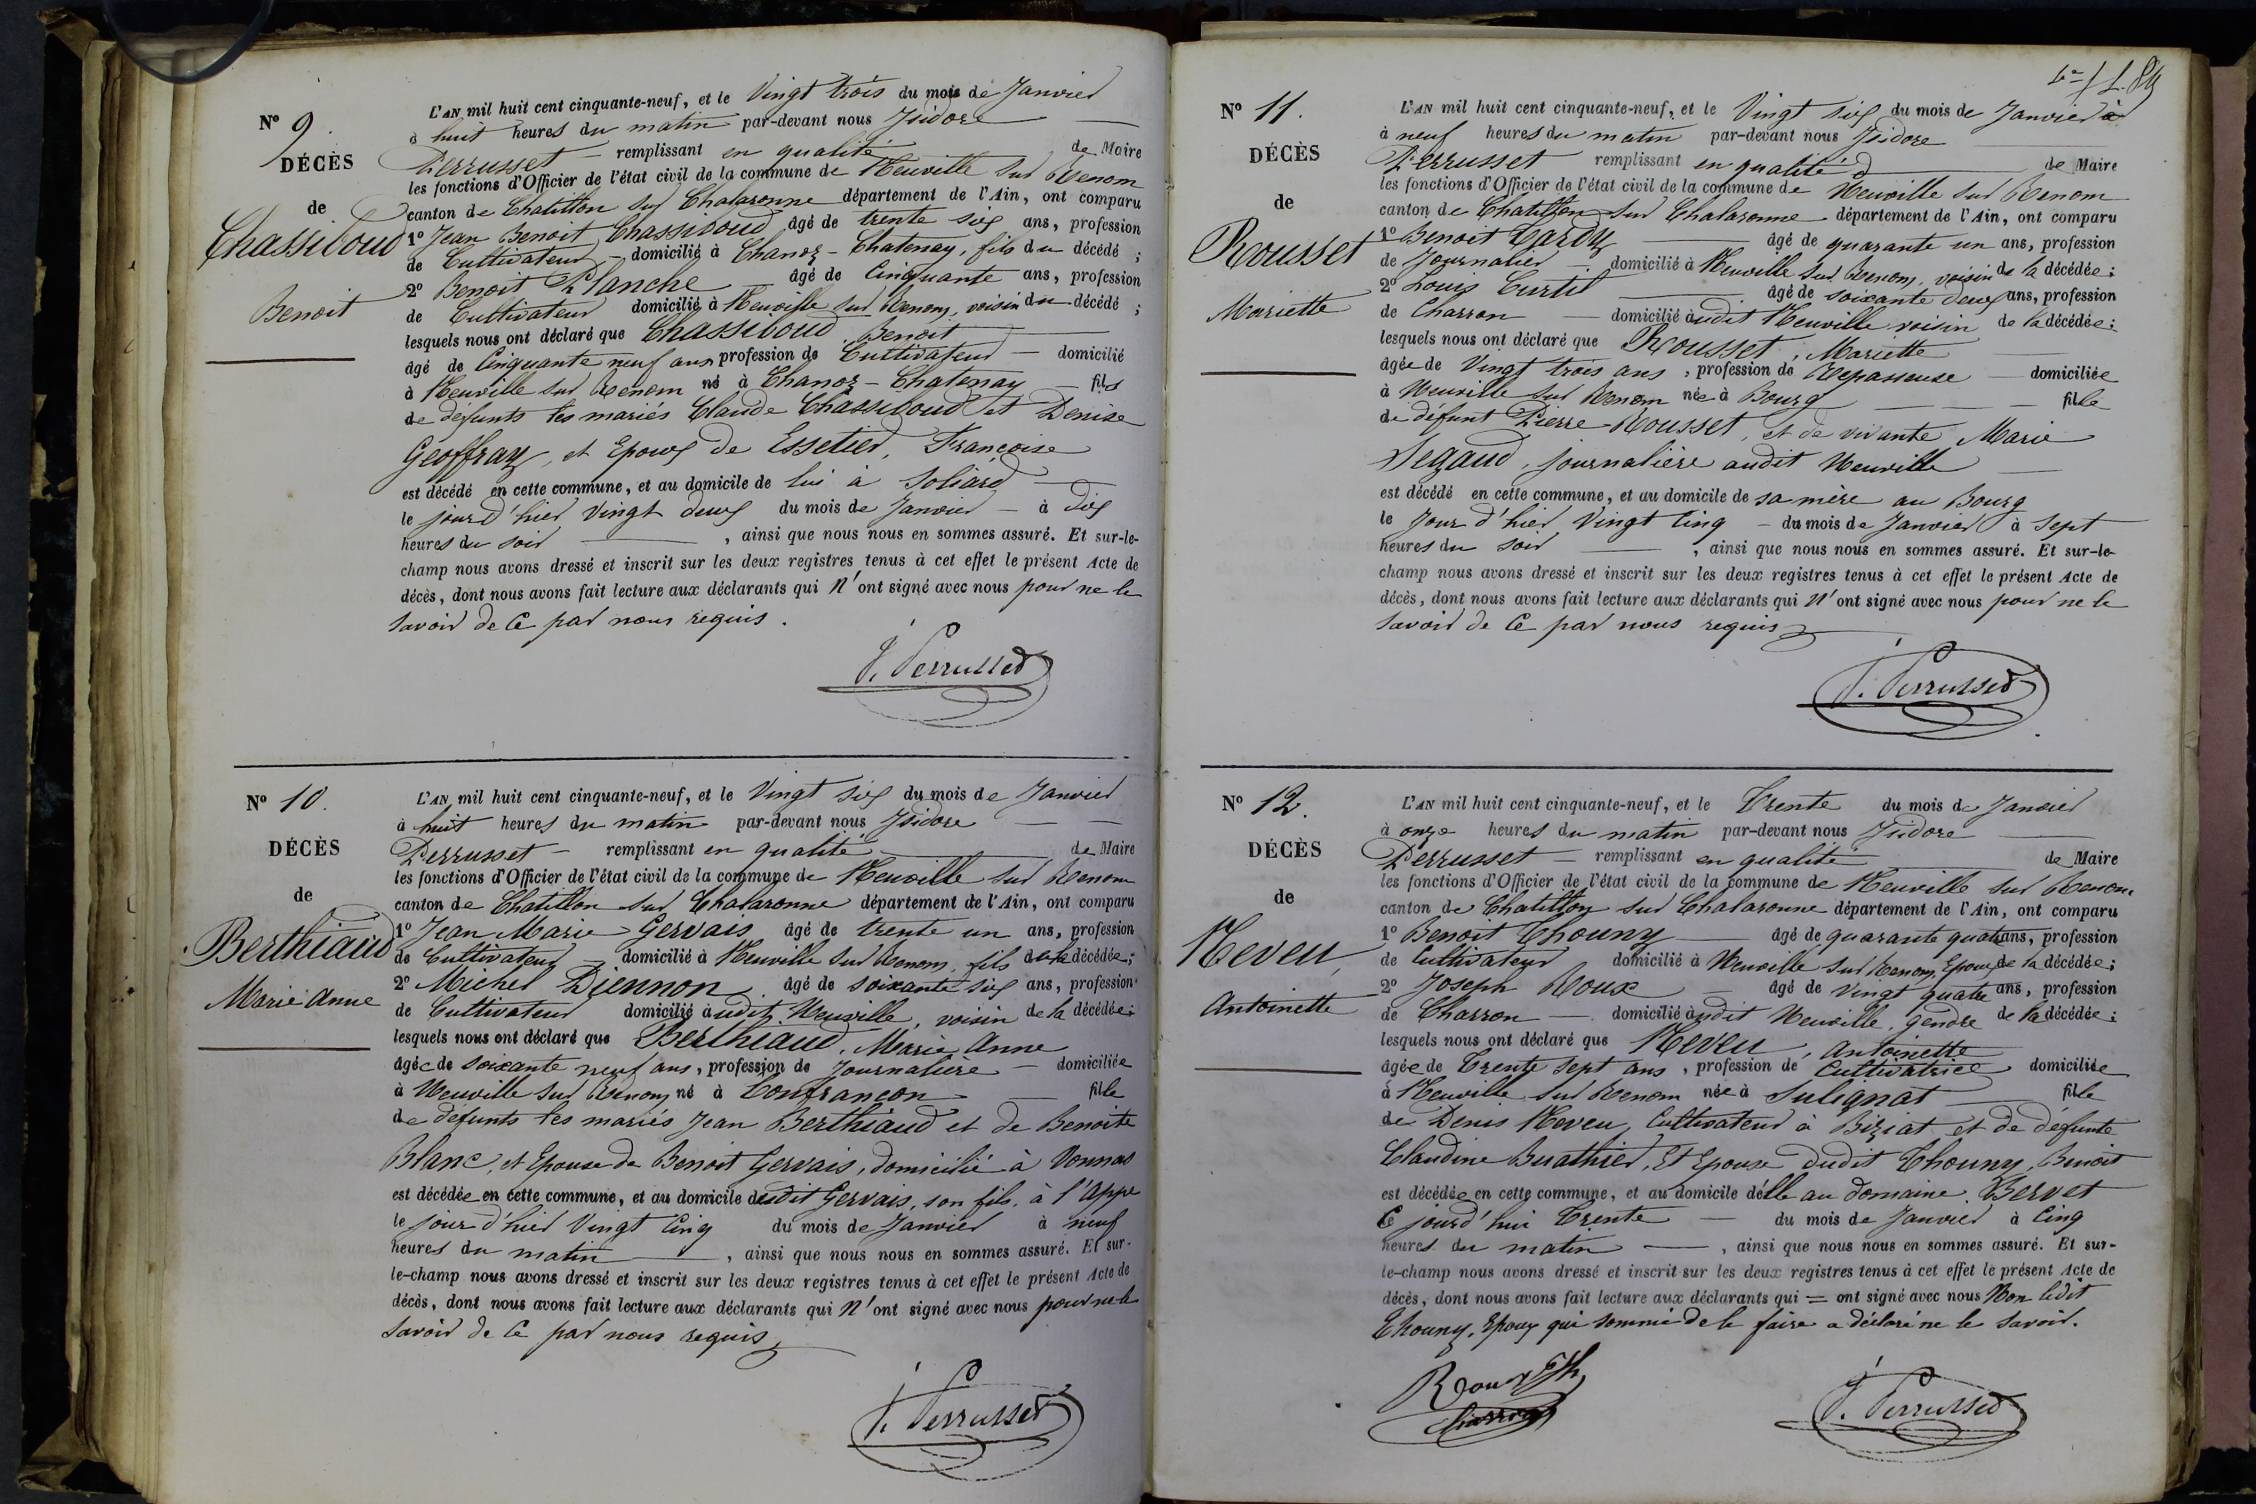 Nº 9.
DÉCÈS
de
Chassiboud
Benoit
L'AN mil huit cent cinquante-neuf, et le Vingt trois du mois de Janvier
à huit heures du matin par-devant nous Isidore
Perrusset remplissant en qualité de Maire
les fonctions d'Officier de l'état civil de la commune de Neuville sur Renom
canton de Chatillon sur Chalaronne département de l'Ain, ont comparu
1º Jean Benoit Chassiboud âgé de trente six ans, profession
de Cultivateur domicilié à Chanoz-Chatenay, fils du décédé ;
2º Benoit Planche âgé de Cinquante ans, profession
de Cultivateur domicilié à Neuville sur Renom, voisin du décédé ;
lesquels nous ont déclaré que Chassiboud, Benoit
âgé de Cinquante neuf ans, profession de Cultivateur domicilié
à Neuville sur Renom né à Chanoz-Chatenay fils
de défunts les mariés Claude Chassiboud et Denise
Géoffray, et Epoux de Essetier, Françoise
est décédé en cette commune, et au domicile de lui à Soliard
le jour d'hier Vingt deux du mois de Janvier à dix
heures du soir, ainsi que nous nous en sommes assuré. Et sur-le-
champ nous avons dressé et inscrit sur les deux registres tenus à cet effet le présent Acte de
décès, dont nous avons fait lecture aux déclarants qui n'ont signé avec nous pour ne le
savoir de Ce par nous requis.
I. Perrusset
Nº 10.
DÉCÈS
de
Berthiaud
Marie Anne
L'AN mil huit cent cinquante-neuf, et le Vingt Six du mois de Janvier
à huit heures du matin par-devant nous Isidore
Perrusset remplissant en qualité de Maire
les fonctions d'Officier de l'état civil de la commune de Neuville sur Renom
canton de Chatillon sur Chalaronne département de l'Ain, ont comparu
1º Jean Marie Gervais âgé de trente un ans, profession
de Cultivateur domicilié à Neuville sur Renom, fils de la décédée ;
2º Michel Diennon âgé de soixante six ans, profession
de Cultivateur domicilié audit Neuville, voisin de la décédée ;
lesquels nous ont déclaré que Berthiaud, Marie Anne
âgée de soixante neuf ans, profession de Journalière domiciliée
à Neuville sur Renom, né à Confrançon fille
de défunts les mariés Jean Berthiaud et de Benoite
Blanc, et Epouse de Benoit Gervais, domicilié à Vonnas
est décédée en cette commune, et au domicile dudit Gervais, son fils, à l'Appe
le jour d'hier Vingt Cinq du mois de Janvier à neuf
heures du matin, ainsi que nous nous en sommes assuré. Et sur-
le-champ nous avons dressé et inscrit sur les deux registres tenus à cet effet le présent Acte de
décès, dont nous avons fait lecture aux déclarants qui n'ont signé avec nous pour ne le
savoir de Ce par nous requis
I. Perrusset
Nº 11.
DÉCÈS
de
Rousset
Mariette
L'AN mil huit cent cinquante-neuf, et le Vingt Six du mois de Janvier à
à neuf heures du matin par-devant nous Isidore
Perrusset remplissant en qualité de Maire
les fonctions d'Officier de l'état civil de la commune de Neuville sur Renom
canton de Chatillon sur Chalaronne département de l'Ain, ont comparu
1º Benoit Cardy âgé de quarante un ans, profession
de Journalier domicilié à Neuville sur Renom, voisin de la décédée ;
2º Louis Curtil âgé de soixante deux ans, profession
de Charron domicilié audit Neuville voisin de la décédée ;
lesquels nous ont déclaré que Rousset, Mariette
âgée de Vingt trois ans, profession de Repasseuse domiciliée
à Neuville sur Renom née à Bourg fille
de défunt Pierre Rousset, et de vivante Marie
Segaud, journalière audit Neuville
est décédé en cette commune, et au domicile de sa mère au Bourg
le Jour d'hier Vingt Cinq du mois de Janvier à Sept
heures du soir, ainsi que nous nous en sommes assuré. Et sur-le-
champ nous avons dressé et inscrit sur les deux registres tenus à cet effet le présent Acte de
décès, dont nous avons fait lecture aux déclarants qui n'ont signé avec nous pour ne le
savoir de Ce par nous requis
I. Perrusset
Nº 12.
DÉCÈS
de
Neveu,
Antoinette
L'AN mil huit cent cinquante-neuf, et le Trente du mois de Janvier
à onze heures du matin par-devant nous Isidore
Perrusset remplissant en qualité de Maire
les fonctions d'Officier de l'état civil de la commune de Neuville sur Renom
canton de Chatillon sur Chalaronne département de l'Ain, ont comparu
1º Benoit Chouny âgé de quarante quatre ans, profession
de Cultivateur domicilié à Neuville sur Renom, Epoux de la décédée ;
2º Joseph Roux âgé de Vingt quatre ans, profession
de Charron domicilié audit Neuville, gendre de la décédée ;
lesquels nous ont déclaré que Neveu, Antoinette
âgée de Trente sept ans, profession de Cultivatrice domiciliée
à Neuville sur Renom née à Sulignat fille
de Denis Neveu, Cultivateur à Biziat et de défunte
Claudine Buathier, Et Epouse dudit Chouny, Benoit
est décédée en cette commune, et au domicile d'elle au domaine Bervet
Ce jourd'hui Trente du mois de Janvier à Cinq
heures du matin, ainsi que nous nous en sommes assuré. Et sur-
le-champ nous avons dressé et inscrit sur les deux registres tenus à cet effet le présent Acte de
décès, dont nous avons fait lecture aux déclarants qui = ont signé avec nous Non ledit
Chouny, Epoux qui sommé de le faire a déclaré ne le savoir.
Roux Jh
Charron
I. Perrusset